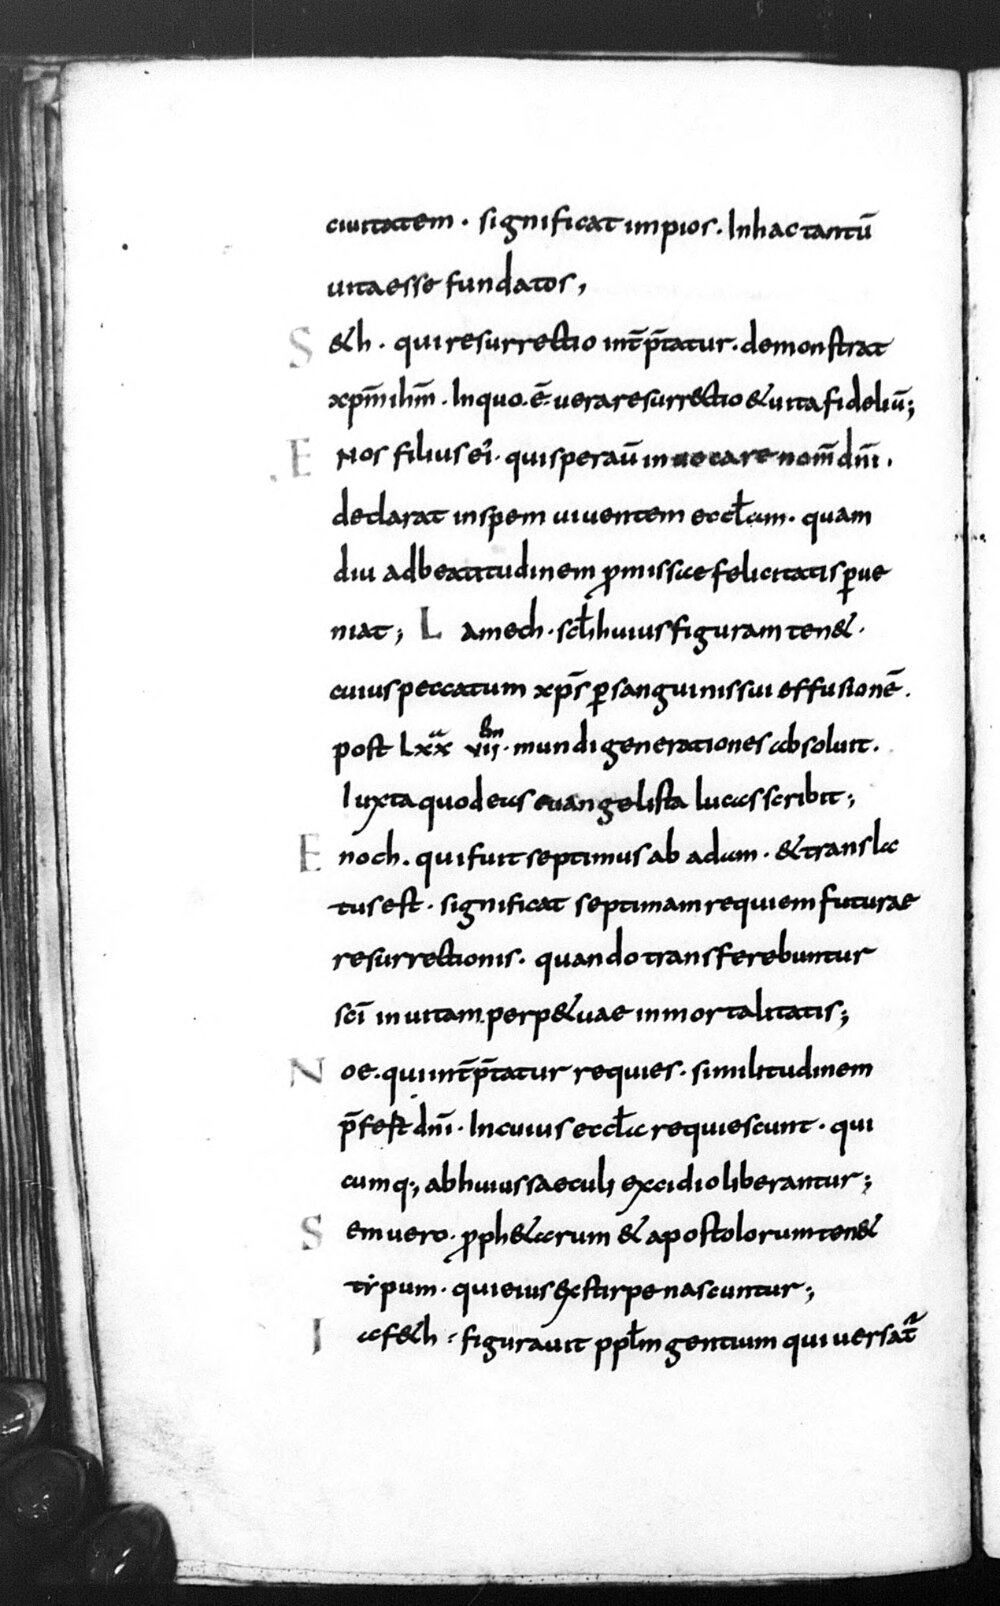 ciuitatem · significat impios · Inhac tantū
uita esse fundatos ,
S &h · qui resurrectio int̄p̄tatur · demonstrat
xp̄m ih̄m · Inquo · ē · uera resurrectio & uita fideliū ;
E Nos filius ei · qui speraū inuocare nom̄ dn̄i .
declarat inspem uiuentem eccl̄am · quam
diu adbeatitudinem p̄missae felicitatis ꝑue
niat ; L amech · scl̄i huius figuram ten& ·
cuius peccatum xp̄s ꝑ sanguinis sui effusionē .
post Lxx vii · mundi generationes absoluit .
Iuxta quod eas euangelista lucas scribit ;
E noch . qui fuit septimus ab adam · & transla
tus est · significat septimam requiem futurae
resurrectionis · quando transferebuntur
sc̄i in uitam perp&uae inmortalitatis ;
N oe · qui int̄p̄tatur requies · similitudinem
p̄fest dn̄i · Incuius eccl̄a requiescunt · qui
cumq; ab huius saeculi excidio liberantur ;
S em uero · p̄ph&arum & apostolorum ten&
tẏpum · qui eius ex stirpe nascuntur ;
I af&h · figurauit ppl̄m gentium qui uersat̄